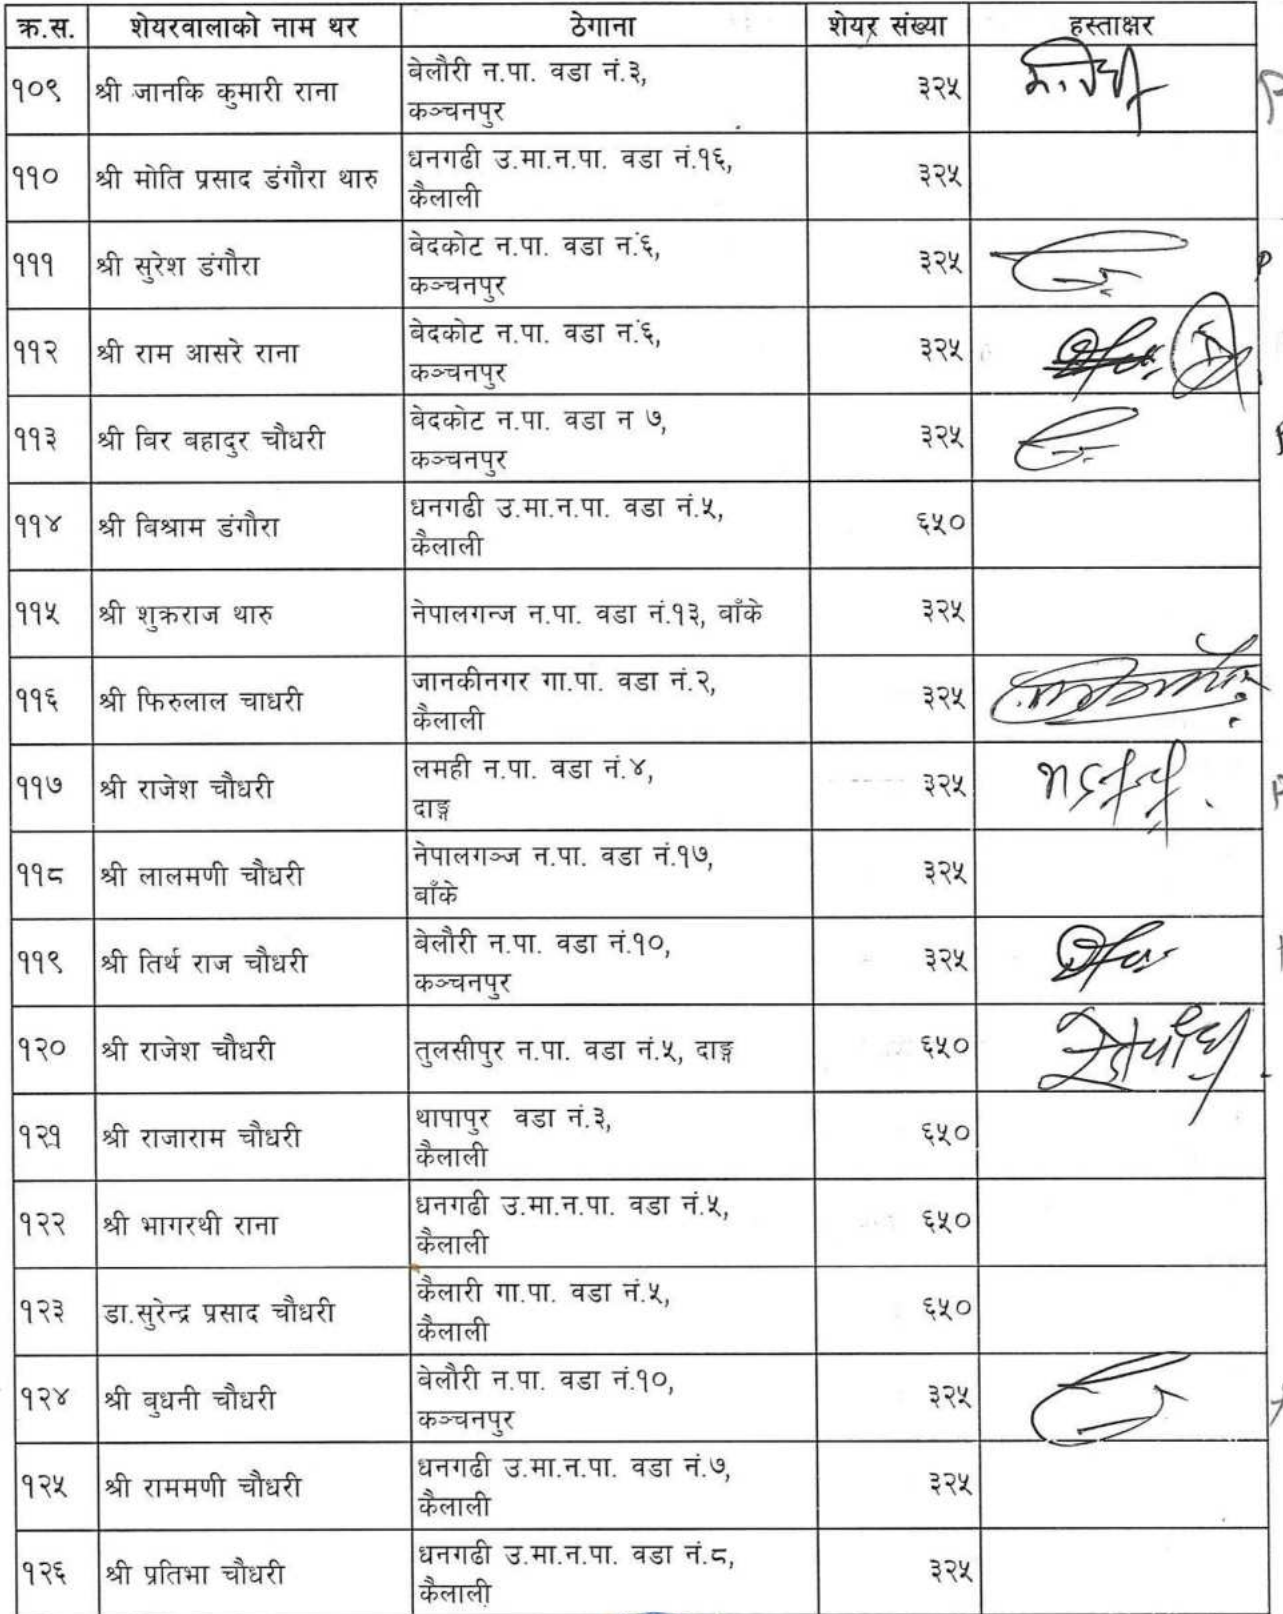 क्र.स. शेयरवालाको नाम थर ठेगाना शेयर संख्या हस्ताक्षर
१०९ श्री जानकि कुमारी राना बेलौरी न.पा. वडा नं.३, ३२५
कञ्चनपुर
११० श्री मोति प्रसाद डंगौरा थारु धनगढी उ.मा.न.पा. वडा नं.१६, ३२५
कैलाली
१११ श्री सुरेश डंगौरा बेदकोट न.पा. वडा नं.६, ३२५
कञ्चनपुर
११२ श्री राम आसरे राना बेदकोट न.पा. वडा नं.६, ३२५
कञ्चनपुर
११३ श्री बिर बहादुर चौधरी बेदकोट न.पा. वडा न ७, ३२५
कञ्चनपुर
११४ श्री बिश्राम डंगौरा धनगढी उ.मा.न.पा. वडा नं.५, ६५०
कैलाली
११५ श्री शुक्रराज थारु नेपालगन्ज न.पा. वडा नं.१३, बाँके ३२५
११६ श्री फिरुलाल चाधरी जानकीनगर गा.पा. वडा नं.२, ३२५
कैलाली
११७ श्री राजेश चौधरी लमही न.पा. वडा नं.४, ३२५
दाङ्ग
११८ श्री लालमणी चौधरी नेपालगञ्ज न.पा. वडा नं.१७, ३२५
बाँके
११९ श्री तिर्थ राज चौधरी बेलौरी न.पा. वडा नं.१०, ३२५
कञ्चनपुर
१२० श्री राजेश चौधरी तुलसीपुर न.पा. वडा नं.५, दाङ्ग ६५०
१२१ श्री राजाराम चौधरी थापापुर वडा नं.३, ६५०
कैलाली
१२२ श्री भागरथी राना धनगढी उ.मा.न.पा. वडा नं.५, ६५०
कैलाली
१२३ डा.सुरेन्द्र प्रसाद चौधरी कैलारी गा.पा. वडा नं.५, ६५०
कैलाली
१२४ श्री बुधनी चौधरी बेलौरी न.पा. वडा नं.१०, ३२५
कञ्चनपुर
१२५ श्री राममणी चौधरी धनगढी उ.मा.न.पा. वडा नं.७, ३२५
कैलाली
१२६ श्री प्रतिभा चौधरी धनगढी उ.मा.न.पा. वडा नं.८, ३२५
कैलाली